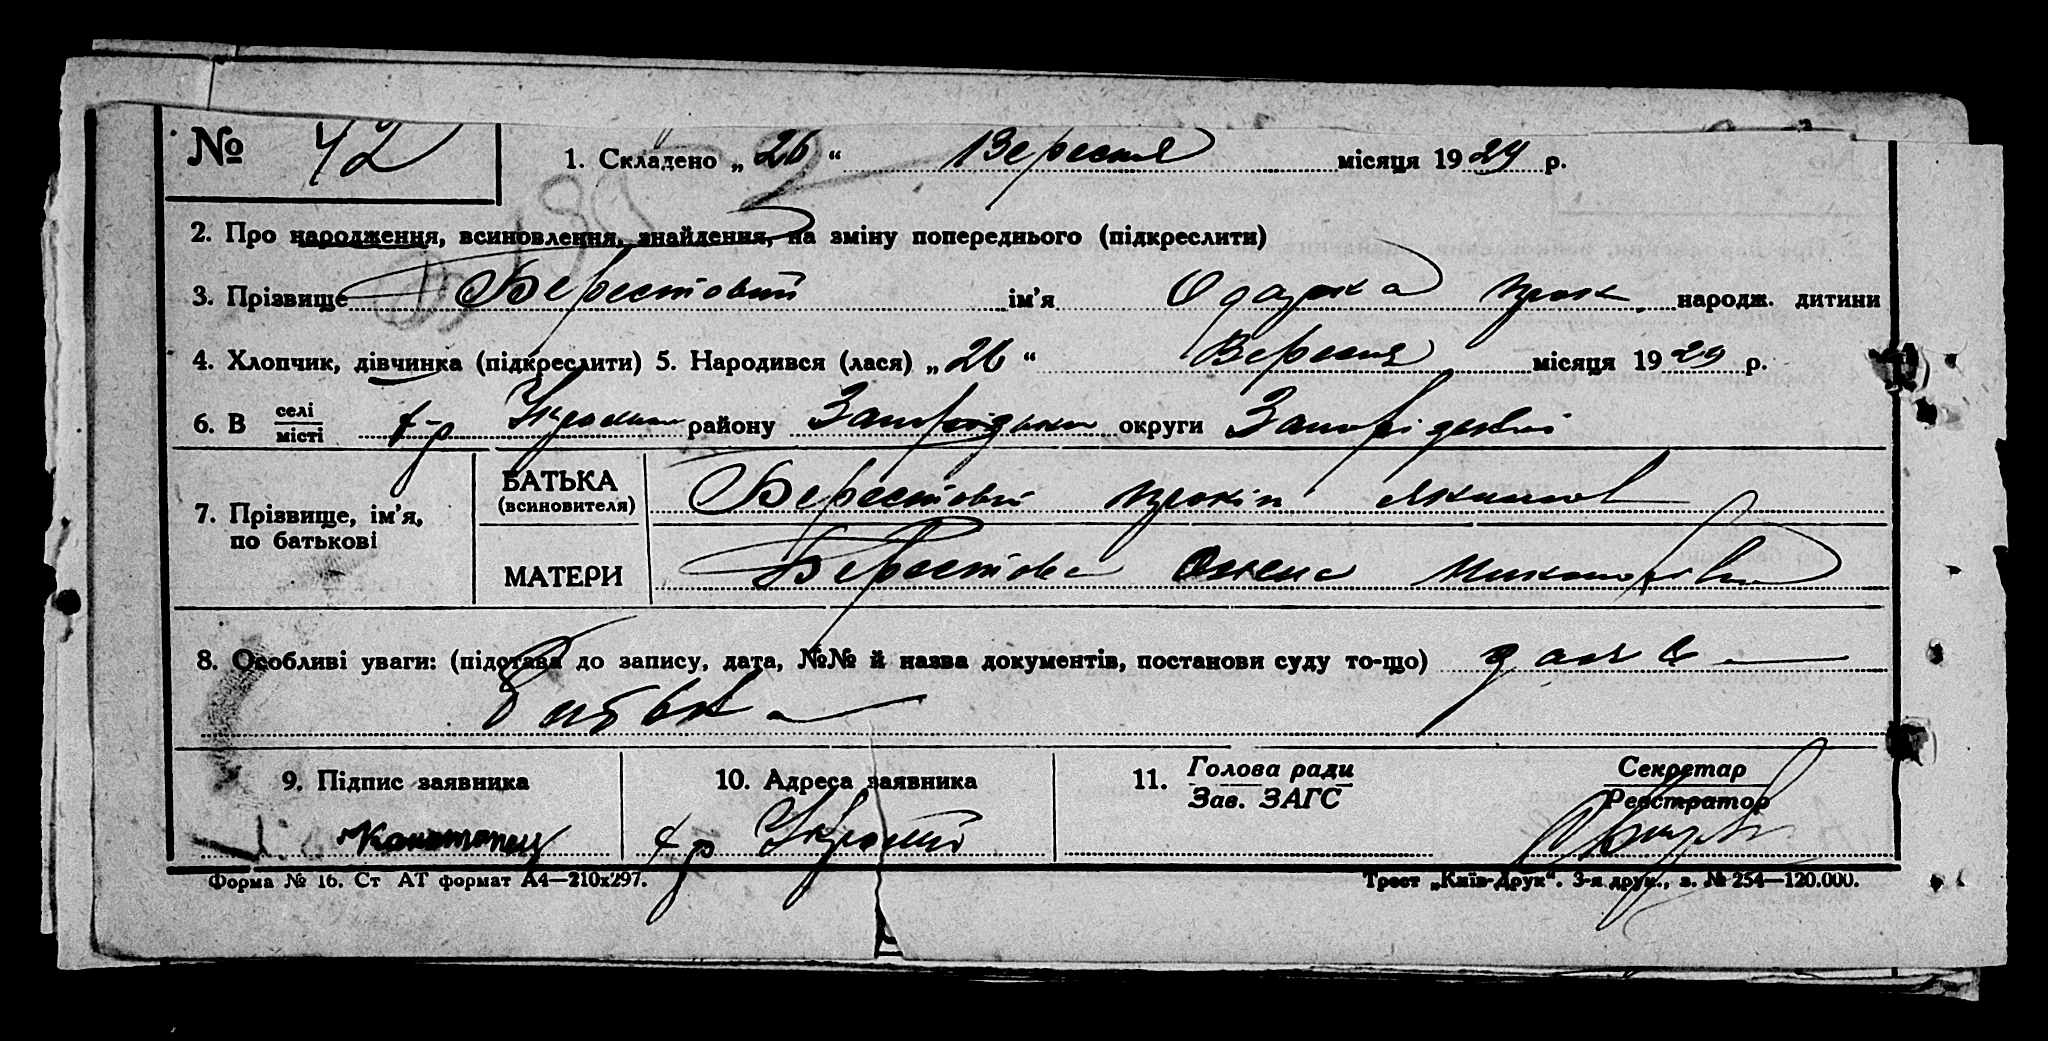 № 42 1. Складено „ 26 “ Вересня місяця 1929 р.
2. Про народження, всиновлення, знайдення, на зміну попереднього (підкреслити)
3. Прізвище Берестовий ім'я Одарка Прок народж. дитини
4. Хлопчик, дівчинка (підкреслити) 5. Народився (лася) „ 26 “ Вересня місяця 1929 р.
6. В селі
місті х-р Украинка району Запорізьки округи Запорізької
7. Прізвище, ім'я, по батькові
БАТЬКА (всиновителя) Берестовий Прокіп Якимов
МАТЕРИ Берестова Олена Никифорівна
8. Особливі уваги: (підстава до запису, дата, №№ й назва документів, постанови суду то-що) заява
батька
9. Підпис заявника 10. Адреса заявника 11. Голова ради Секретар
Зав. ЗАГС Реєстратор
х р
Форма № 16. Ст АТ формат А4—210х297. Трест „Київ-Друк“. 3-я друк., з. № 254—120.000.